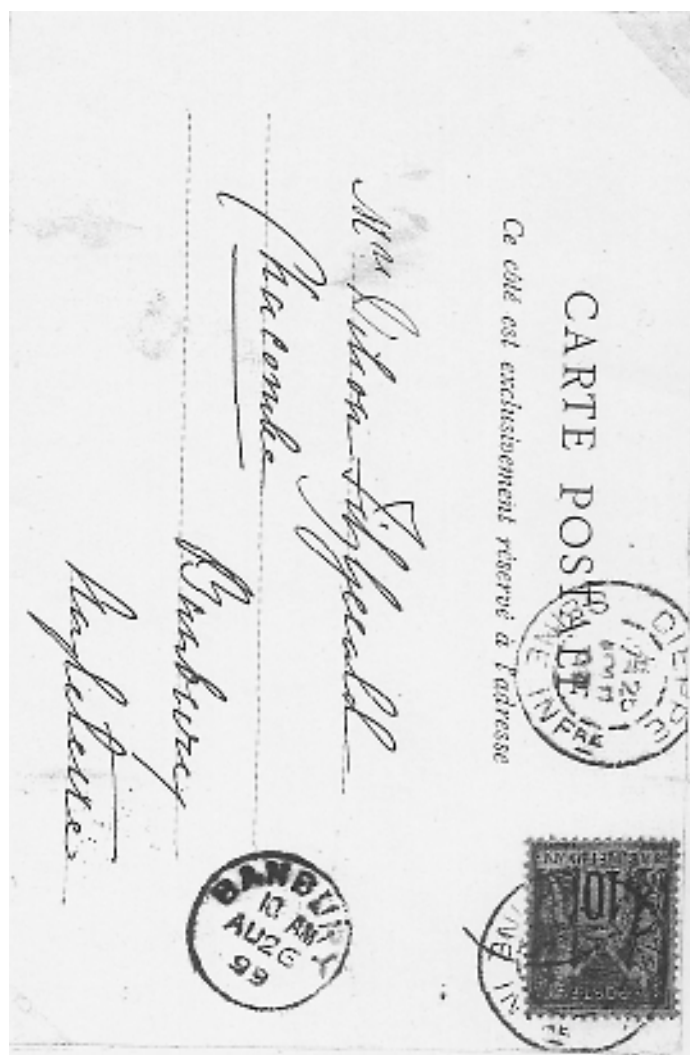 CARTE POSTALE
Ce côté est exclusivement réservé à l'adresse
DIEPPE
25
INE INFRE
10
Mrs Dixon Fitzgerald
Chacombe
Banbury
Angleterre
BANBURY
10 AM
AU 26
99